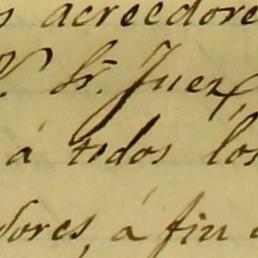 s acreedore
Sr. Juez,
á todos los
dores, á fin